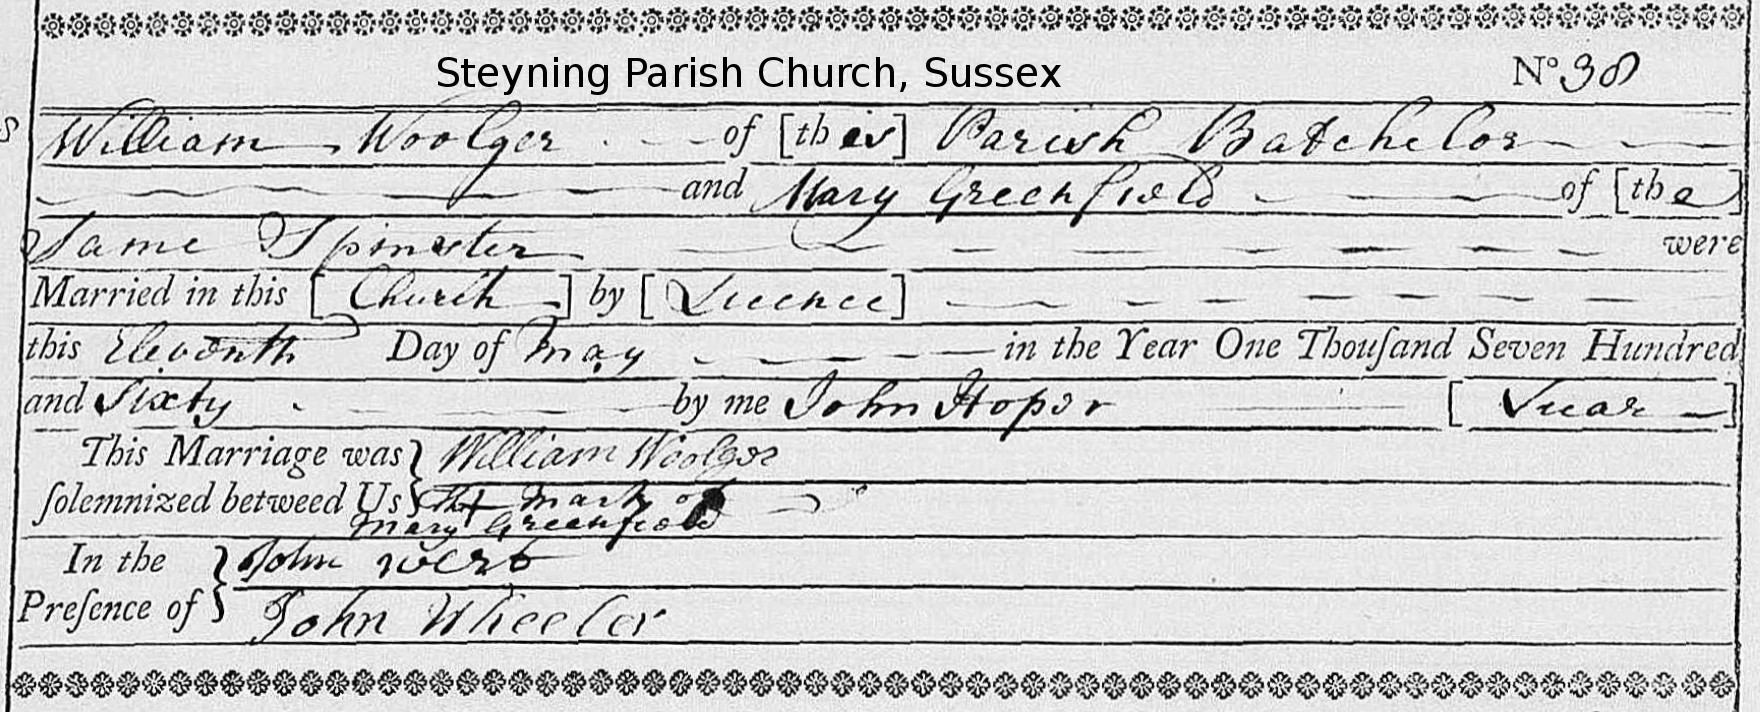 Steyning Parish Church, Sussex
N° 38
William Woolger of [this] Parish Batchelor
and Mary Greenfield of [the]
Same Spinster were
Married in this [Church] by [Licence]
this Eleventh Day of May in the Year One Thouſand Seven Hundred
and Sixty by me John Hoper [Vicar]
This Marriage was } William Woolger
ſolemnized betweed Us } The + Mark of
Mary Greenfield
In the } John West
Preſence of } John Wheeler